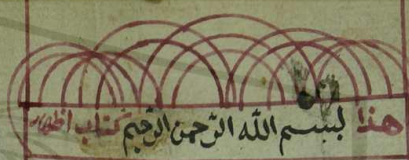 هذا بسم الله الرحمن الرحيم كتاب اظهار